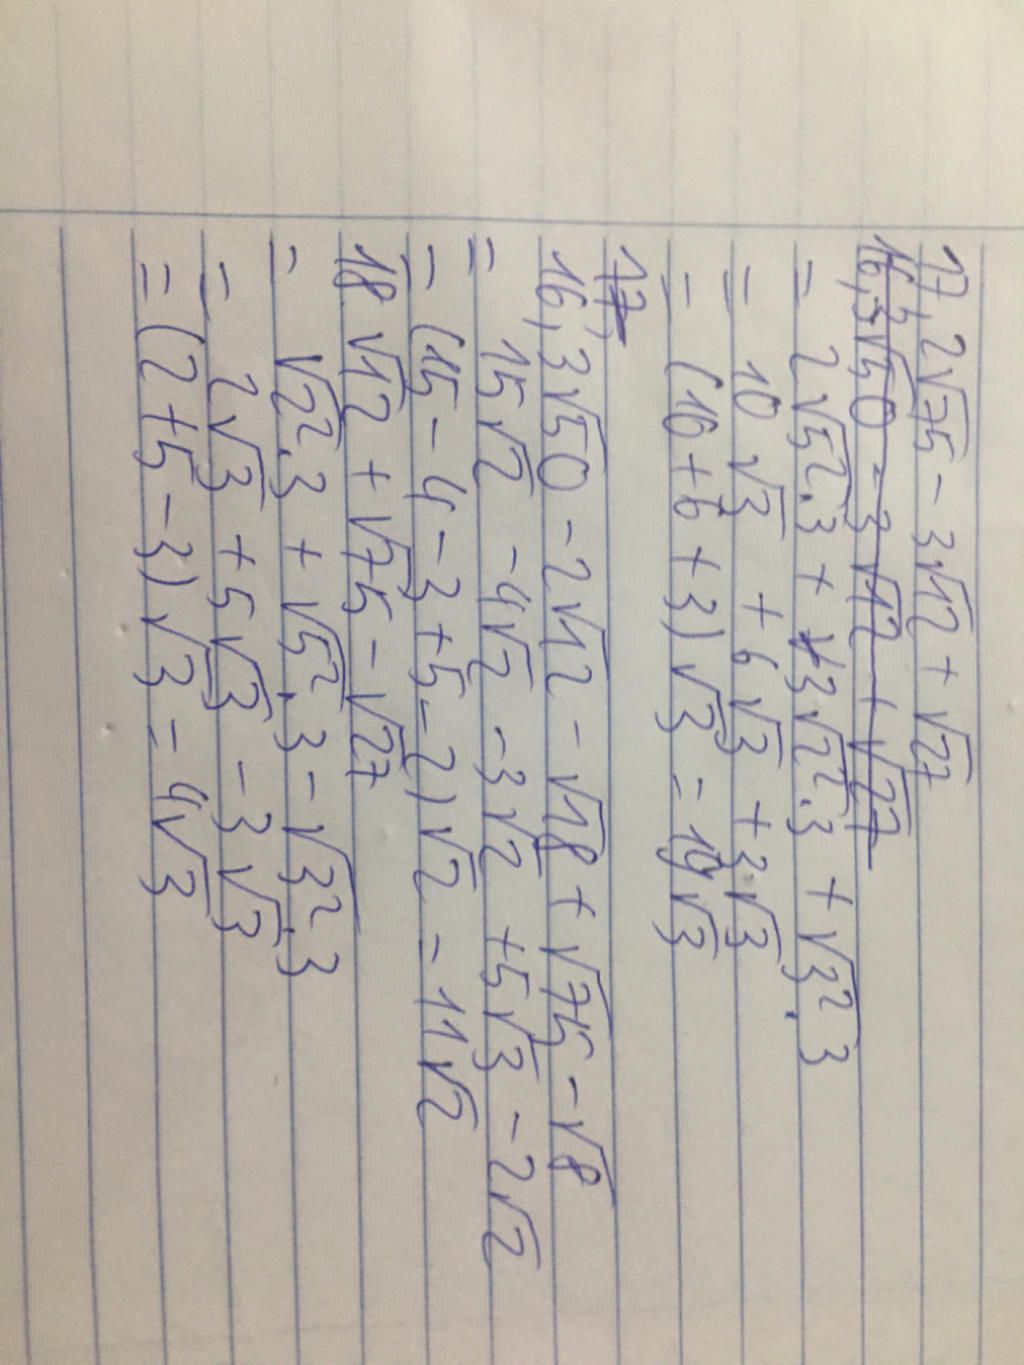 17, 2√75 - 3√12 + √27
16, 3√50 - 3√12 + √27
= 2√5².3 + 3√2².3 + √3².3
= 10√3 + 6√3 + 3√3
= (10 + 6 + 3)√3 = 19√3
17,
16, 3√50 - 2√12 - √18 + √75 - √8
= 15√2 - 4√2 - 3√2 + 5√3 - 2√2
= (15 - 4 - 3 + 5 - 2)√2 = 11√2
18 √12 + √75 - √27
= √2².3 + √5².3 - √3².3
= 2√3 + 5√3 - 3√3
= (2 + 5 - 3)√3 = 4√3